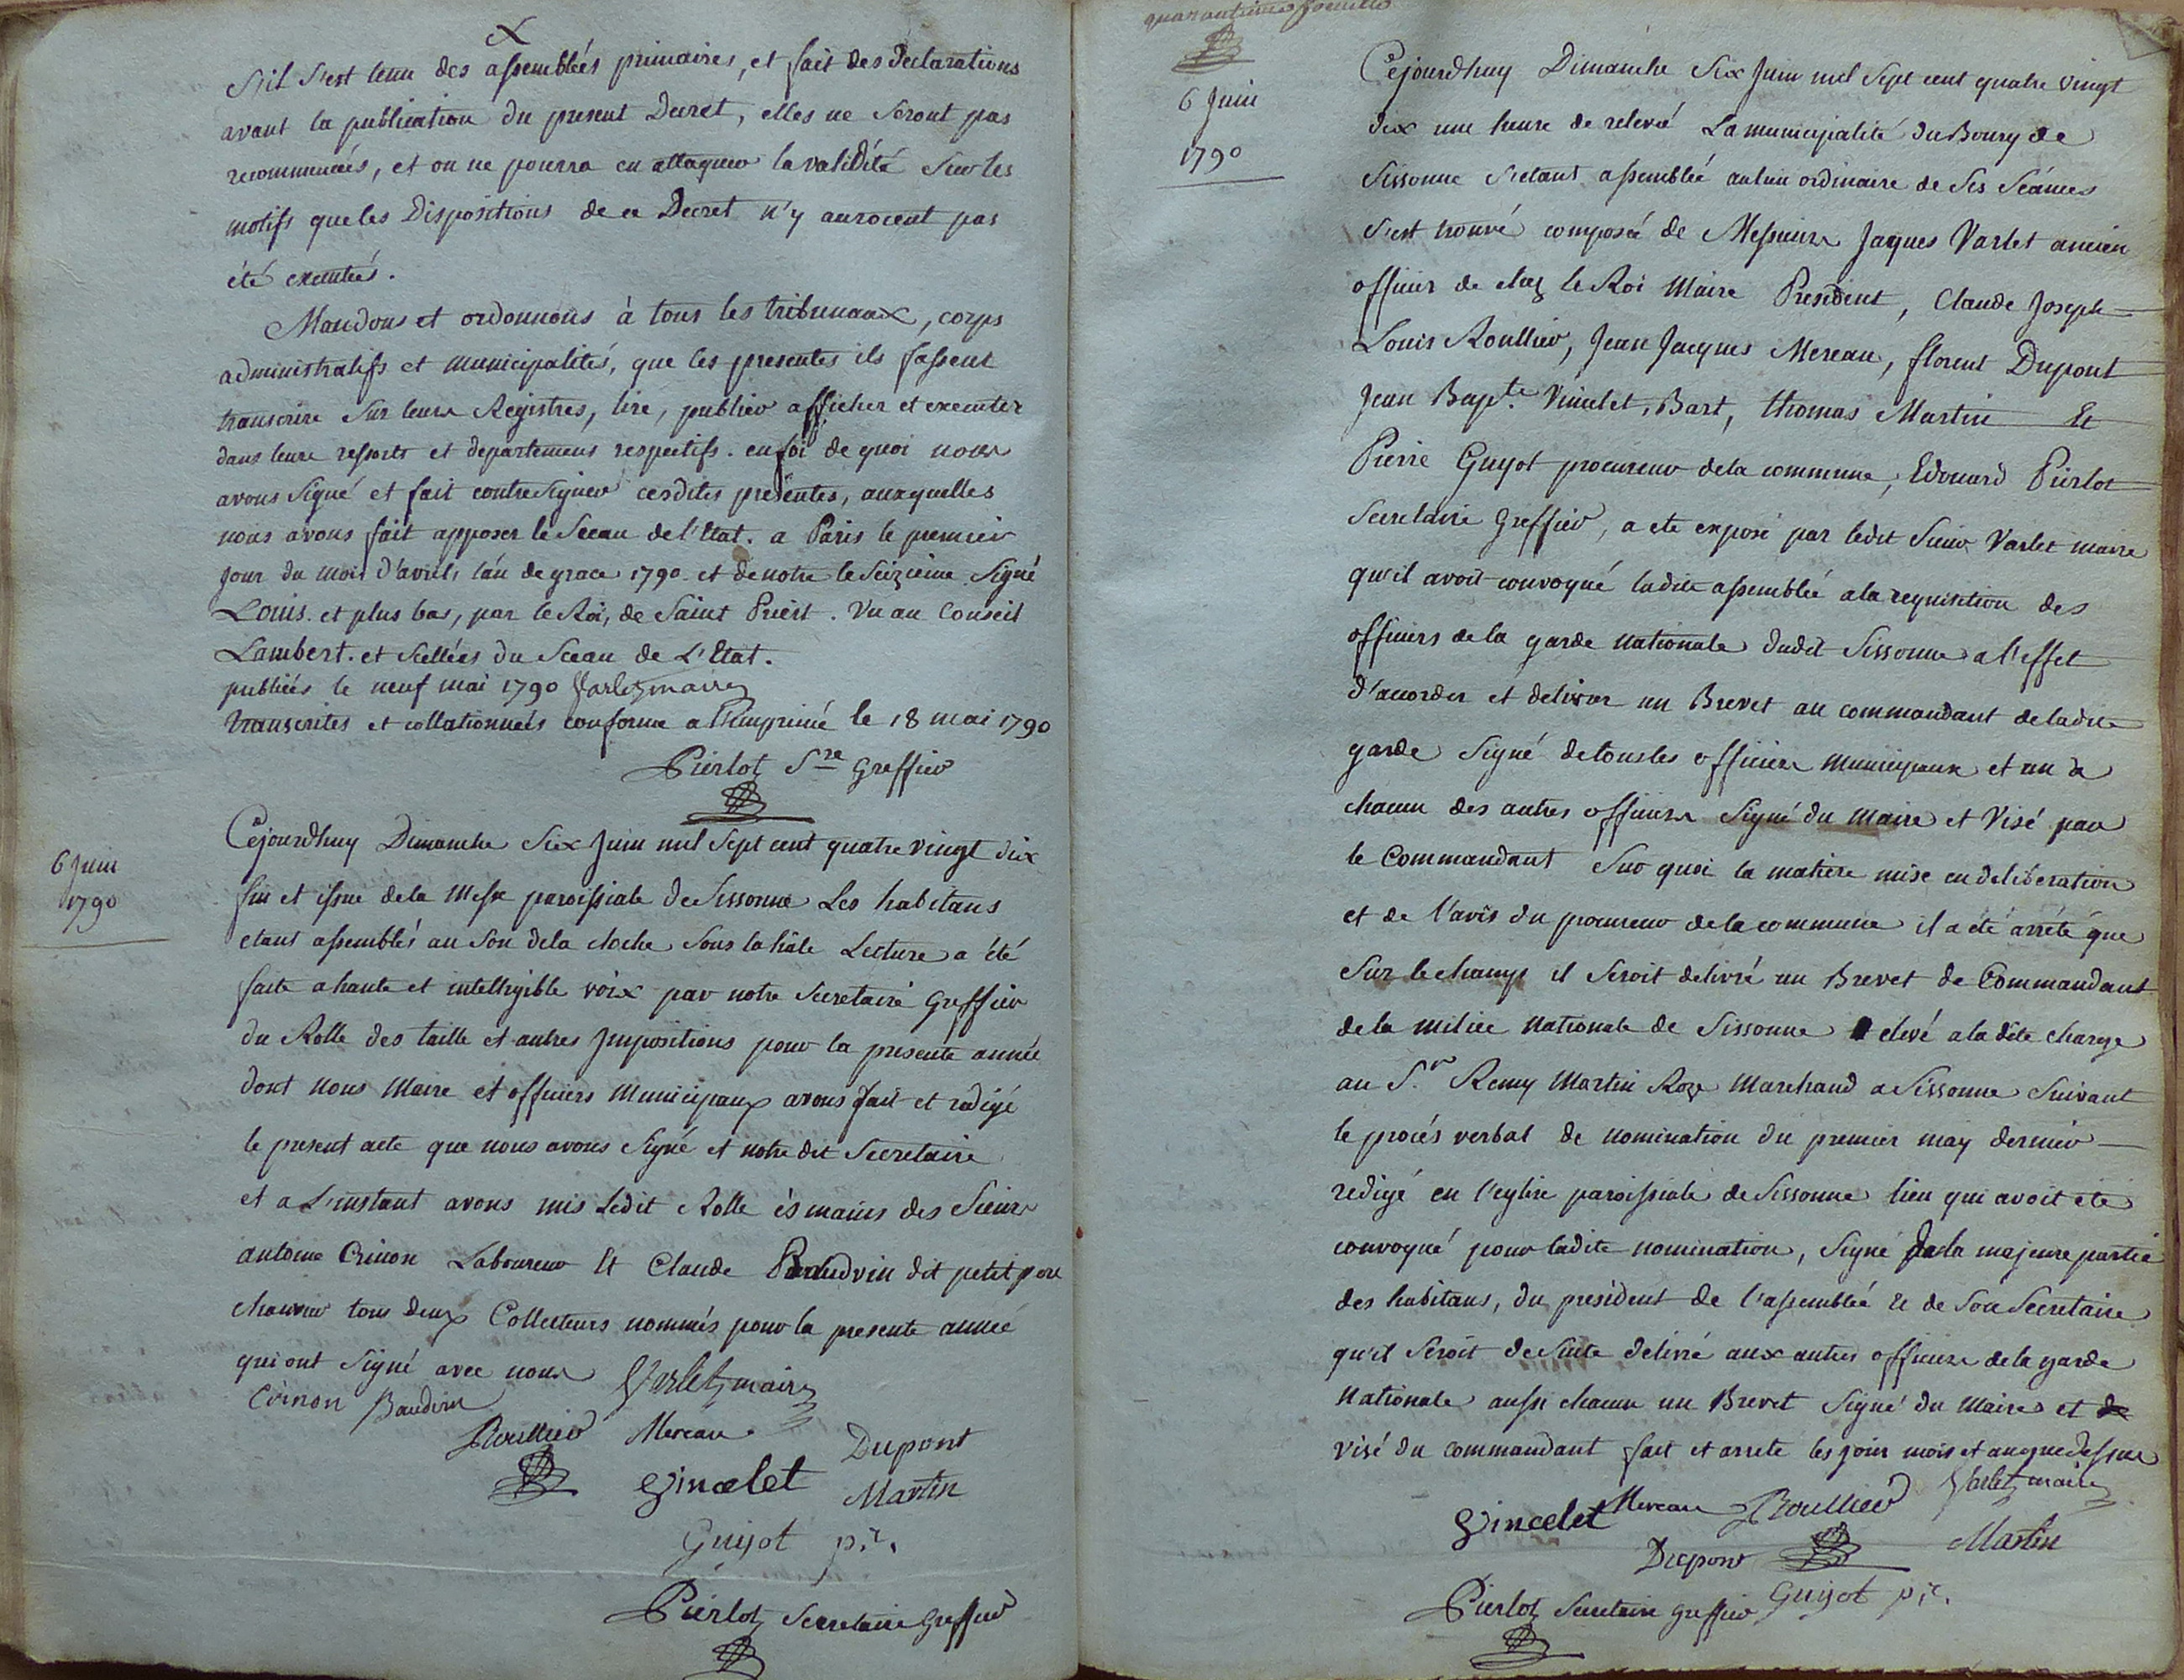 S'il s'est tenu des assemblées primaires, et fait des Declarations
avant la publication du present Decret, elles ne seront pas
recommencées, et on ne pourra en attaquer la validité sur les
motifs que les Dispositions de ce Decret n'y auroient pas
été executées.
Mandons et ordonnons à tous les tribunaux, corps
administratifs et municipalités, que les presentes ils fassent
transcrire sur leurs Registres, lire, publier afficher et executer
dans leurs ressorts et departemens respectifs. en foi de quoi nous
avons signé et fait contresigner cesdites presentes, auxquelles
nous avons fait apposer le Sceau de l'Etat. a Paris le premier
jour du mois d'avril, l'an de grace 1790. et de notre le Seizieme Signé
Louis. et plus bas, par le Roi, de Saint Priest. Vu au Conseil
Lambert. et Scellées du Sceau de L'Etat.
publiées le neuf mai 1790 Varlet maire
transcrites et collationnées conforme a l'Imprimé le 18 mai 1790
Pierlot Sre Greffier
6 Juin
1790
Cejourdhuy Dimanche Six Juin mil Sept cent quatre vingt dix
fin et issue de la Messe paroissiale de Sissonne Les habitans
etant assemblés au Son de la cloche Sous la hâle Lecture a été
faite a haute et intelligible voix par notre Secretaire Greffier
du Rolle des taille et autres Impositions pour la presente année
dont nous Maire et officiers Municipaux avons fait et redigé
le present acte que nous avons Signé et notre dit Secretaire
et a L'instant avons mis Ledit Rolle ès mains des Sieurs
antoine Crinon Laboureur Et Claude Baudvin dit petit pere
chanvrier tous deux Collecteurs nommés pour la presente année
qui ont Signé avec nous Varlet maire
Crinon Baudvin
Roullier Mereau Dupont
Vincelet Martin
Guyot pr.
Pierlot Secretaire Greffier
quarantieme feuille
6 Juin
1790
Cejourdhuy Dimanche Six Juin mil Sept cent quatre vingt
dix une heure de relevé La municipalité du Bourg de
Sissonne S'etant assemblée au lieu ordinaire de Ses Séances
S'est trouvé composée de Messieurs Jaques Varlet ancien
officier de chez le Roi Maire President, Claude Joseph
Louis Roullier, Jean Jacques Mereau, florent Dupont
Jean Bapte. Vincelet, Bart, thomas Martin Et
Pierre Guyot procureur de la commune, Edouard Pierlot
Secretaire Greffier, a ete exposé par ledit Sieur Varlet maire
qu'il avoit convoqué ladite assemblée a la requisition des
officiers de la garde Nationale dudit Sissonne a l'effet
d'accorder et delivrer un Brevet au commandant de ladite
garde Signé de tous les officiers Municipaux et un a
chacun des autres officiers Signé du Maire et Visé par
le Commandant Sur quoi la matiere mise en deliberation
et de l'avis du procureur de la commune il a été arrêté que
Sur le champs il Seroit delivré un Brevet de Commandant
de la milice Nationale de Sissonne elevé a la dite charge
au Sr. Remy Martin Roze Marchand a Sissonne Suivant
le procés verbal de nomination du premier may dernier
redigé en l'eglise paroissiale de Sissonne lieu qui avoit ete
convoqué pour ladite nomination, Signé de la majeure partie
des habitans, du president de l'assemblée Et de Son Secretaire
qu'il Seroit de Suite délivré aux autres officiers de la garde
Nationale aussi chacun un Brevet Signé du Maire et
visé du commandant fait et arrete les jour mois et an que dessus
Vincelet Mereau Roullier Varlet maire
Dupont Martin
Pierlot Secretaire Greffier Guyot pr.